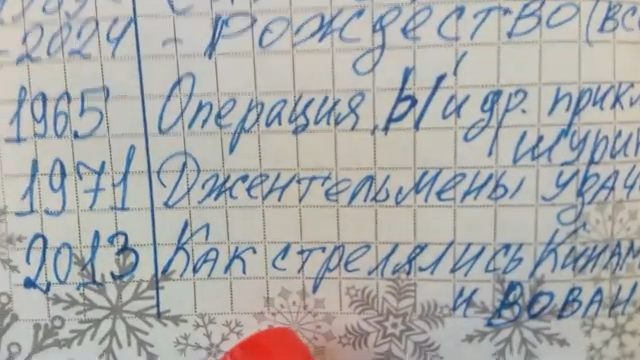 2024 - РОЖДЕСТВО (ВС
1965 Операция Ы и др. прикл
Шурик
1971 Джентельмены удач
2013 Как стрелялись Кинам
и Вован